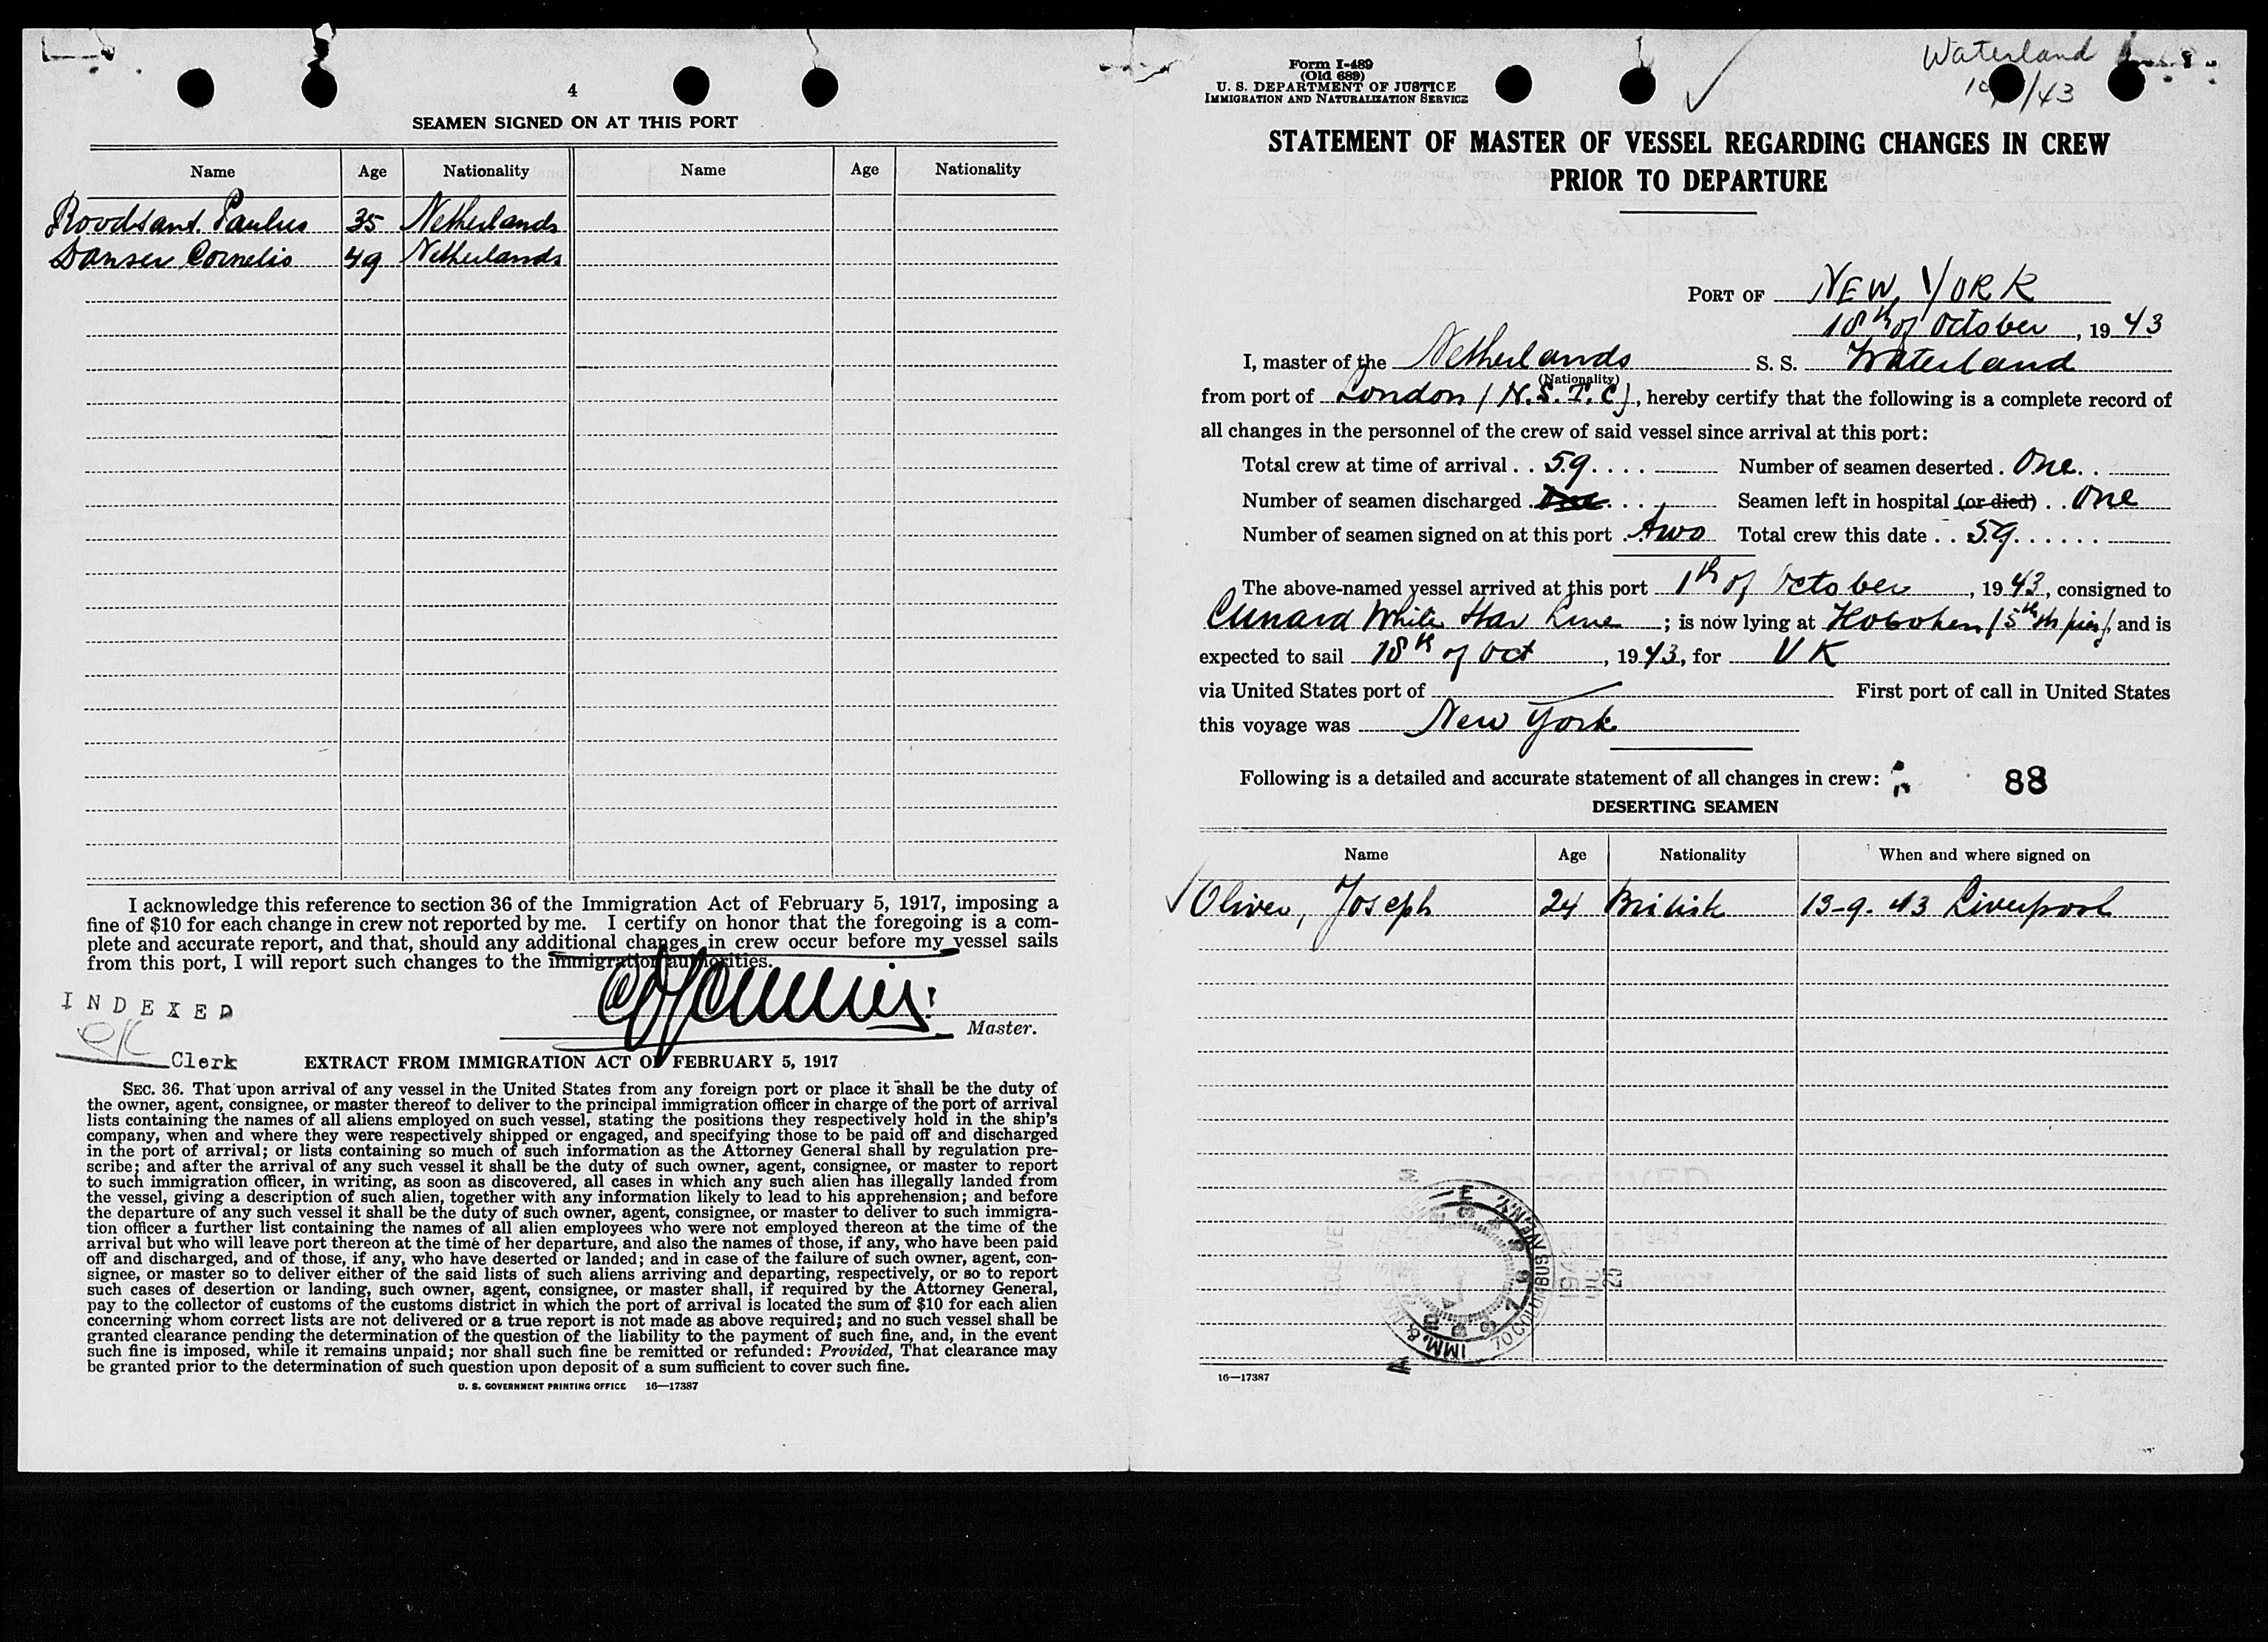 4
SEAMEN SIGNED ON AT THIS PORT
Name Age Nationality Name Age Nationality
Roodsant. Paulus 35 Netherlands
Danser Cornelis 49 Netherlands
I acknowledge this reference to section 36 of the Immigration Act of February 5, 1917, imposing a
fine of $10 for each change in crew not reported by me. I certify on honor that the foregoing is a com-
plete and accurate report, and that, should any additional changes in crew occur before my vessel sails
from this port, I will report such changes to the immigration authorities.
INDEXED
Master.
Clerk
EXTRACT FROM IMMIGRATION ACT OF FEBRUARY 5, 1917
SEC. 36. That upon arrival of any vessel in the United States from any foreign port or place it shall be the duty of
the owner, agent, consignee, or master thereof to deliver to the principal immigration officer in charge of the port of arrival
lists containing the names of all aliens employed on such vessel, stating the positions they respectively hold in the ship's
company, when and where they were respectively shipped or engaged, and specifying those to be paid off and discharged
in the port of arrival; or lists containing so much of such information as the Attorney General shall by regulation pre-
scribe; and after the arrival of any such vessel it shall be the duty of such owner, agent, consignee, or master to report
to such immigration officer, in writing, as soon as discovered, all cases in which any such alien has illegally landed from
the vessel, giving a description of such alien, together with any information likely to lead to his apprehension; and before
the departure of any such vessel it shall be the duty of such owner, agent, consignee, or master to deliver to such immigra-
tion officer a further list containing the names of all alien employees who were not employed thereon at the time of the
arrival but who will leave port thereon at the time of her departure, and also the names of those, if any, who have been paid
off and discharged, and of those, if any, who have deserted or landed; and in case of the failure of such owner, agent, con-
signee, or master so to deliver either of the said lists of such aliens arriving and departing, respectively, or so to report
such cases of desertion or landing, such owner, agent, consignee, or master shall, if required by the Attorney General,
pay to the collector of customs of the customs district in which the port of arrival is located the sum of $10 for each alien
concerning whom correct lists are not delivered or a true report is not made as above required; and no such vessel shall be
granted clearance pending the determination of the question of the liability to the payment of such fine, and, in the event
such fine is imposed, while it remains unpaid; nor shall such fine be remitted or refunded: Provided, That clearance may
be granted prior to the determination of such question upon deposit of a sum sufficient to cover such fine.
U. S. GOVERNMENT PRINTING OFFICE 16—17387
Waterland
/43
Form I-489
(Old 689)
U. S. DEPARTMENT OF JUSTICE
IMMIGRATION AND NATURALIZATION SERVICE
STATEMENT OF MASTER OF VESSEL REGARDING CHANGES IN CREW
PRIOR TO DEPARTURE
PORT OF NEW YORK
18th of October, 1943
I, master of the Netherlands S. S. Waterland
(Nationality)
from port of London (N.S.T.C), hereby certify that the following is a complete record of
all changes in the personnel of the crew of said vessel since arrival at this port:
Total crew at time of arrival . . 59. . . . Number of seamen deserted . One. .
Number of seamen discharged . . . . Seamen left in hospital (or died) . . One
Number of seamen signed on at this port . two Total crew this date . . 59. . . . . .
The above-named vessel arrived at this port 1th of October, 1943, consigned to
Cunard White Star Line; is now lying at Hoboken (5th pier), and is
expected to sail 18th of Oct, 1943, for UK
via United States port of First port of call in United States
this voyage was New York
Following is a detailed and accurate statement of all changes in crew: 88
DESERTING SEAMEN
Name Age Nationality When and where signed on
Oliver, Joseph 24 British 13-9-43 Liverpool
70 COLUMBUS AVE N.Y.
IMM. &
16—17387